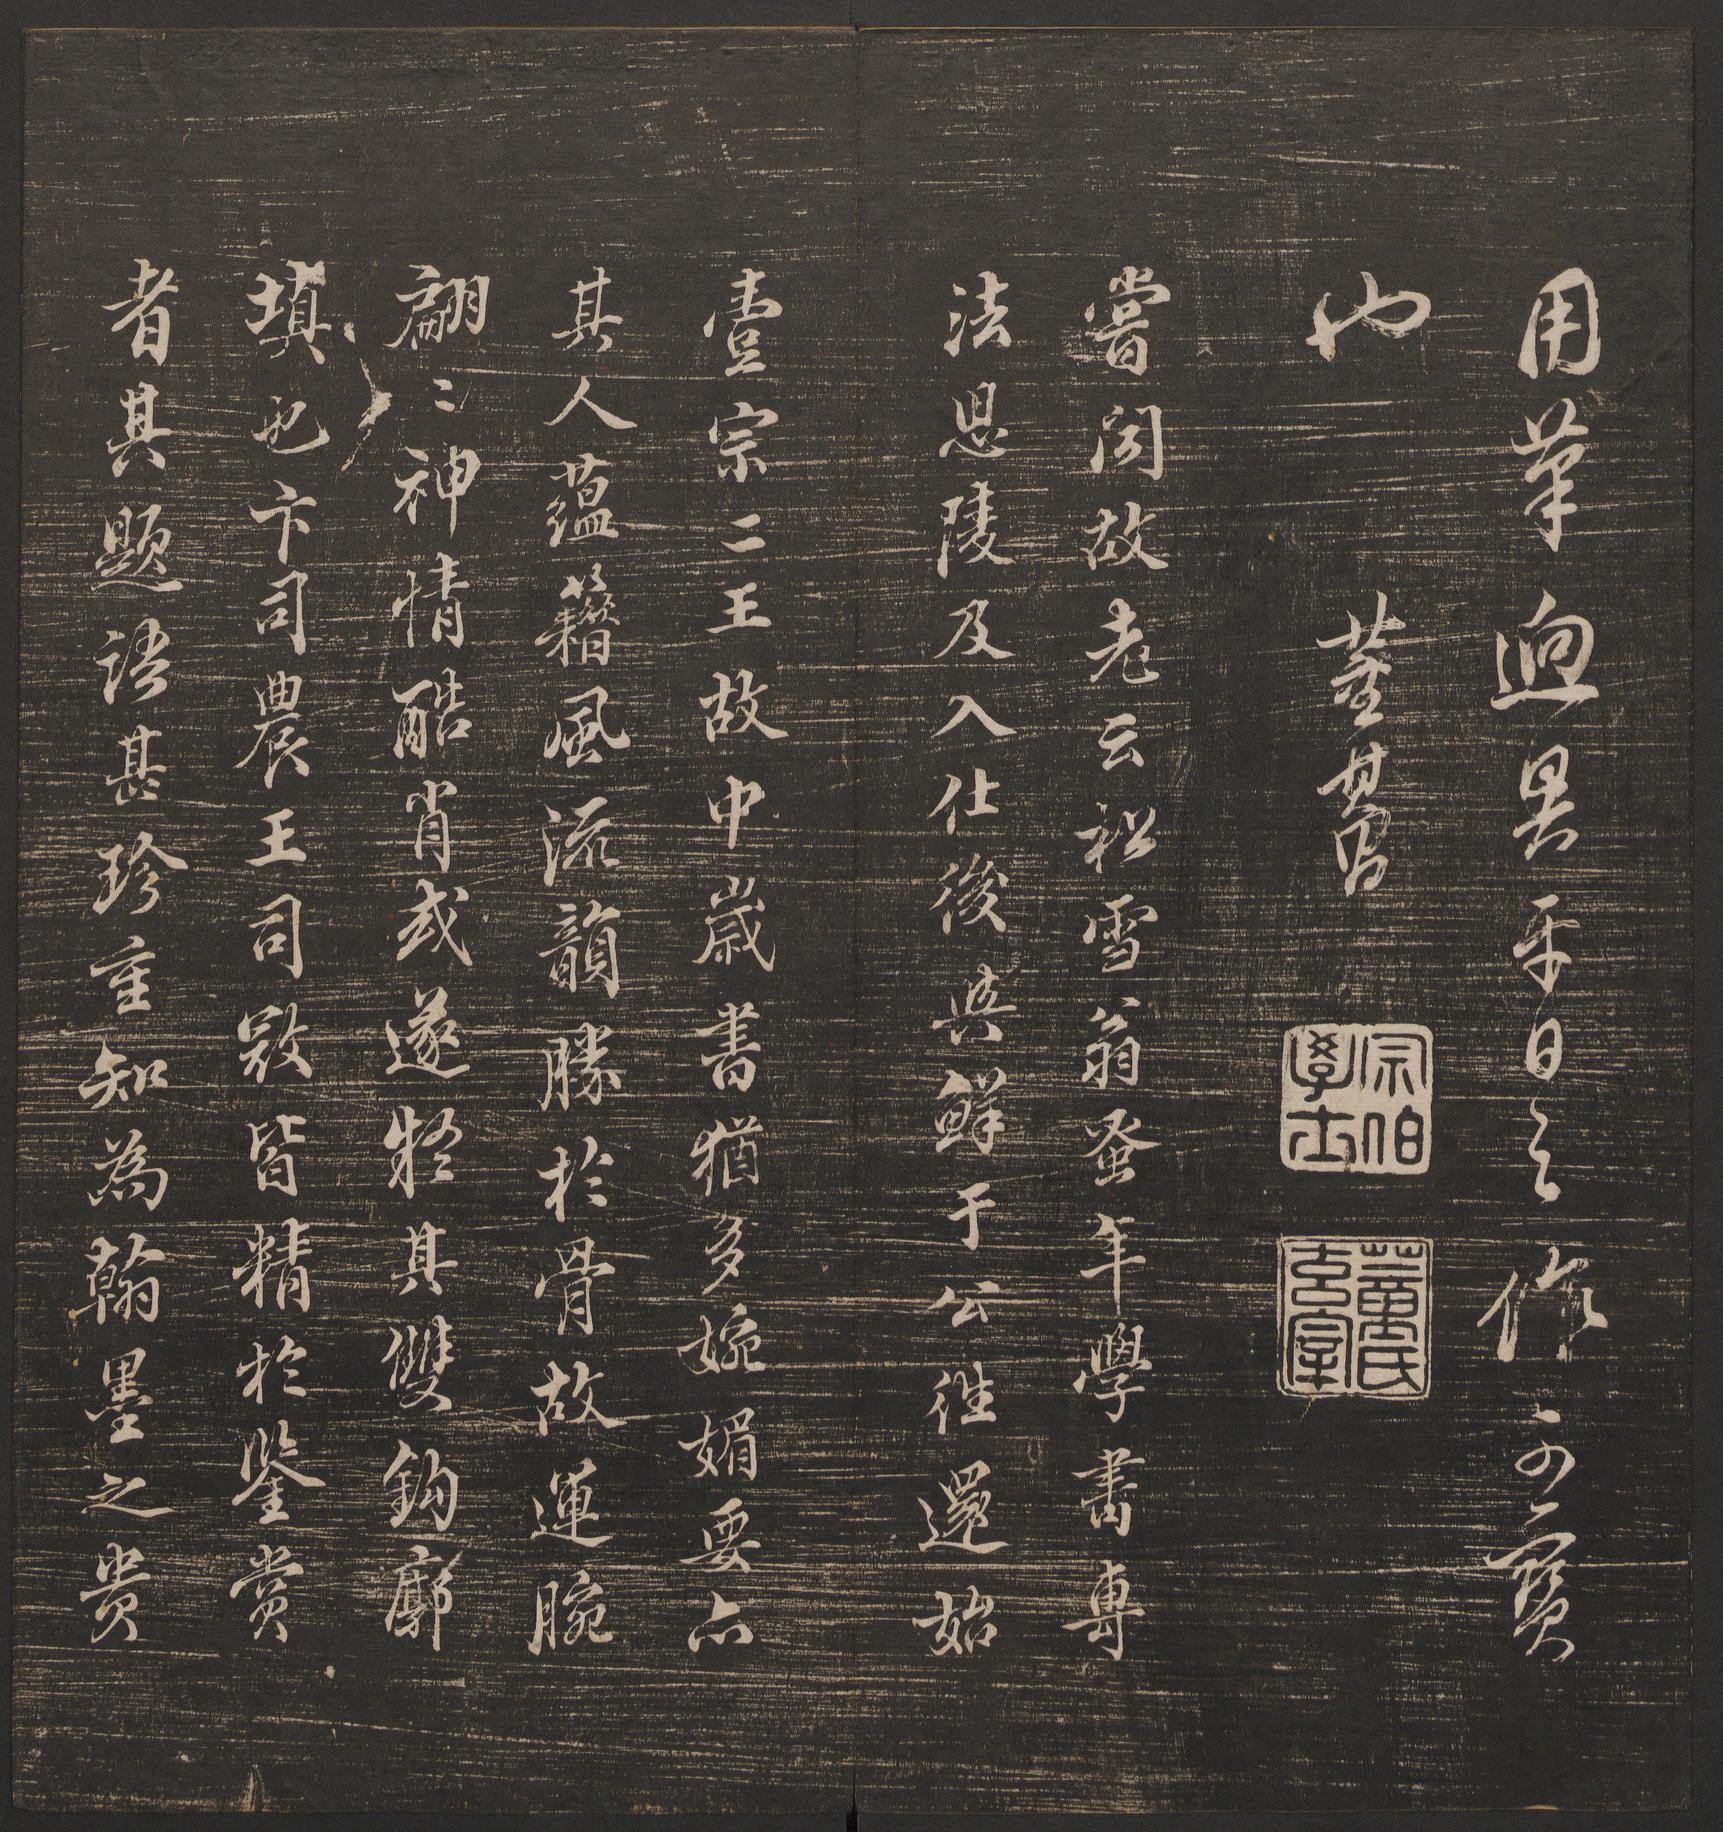 用筆迥異平日之作可寶
也　董其昌
宗伯學士
董氏玄宰
嘗聞故老云松雪翁蚤年學書專
法思陵及入仕後與鮮于公往還始
壹宗二王故中歲書猶多婉媚要亦
其人蘊籍風流韻勝於骨故運腕
翩〻神情酷肖或遂疑其雙鈎廓
填也卞司農王司寇皆精於鑒賞
者其題語甚珍重知為翰墨之貴